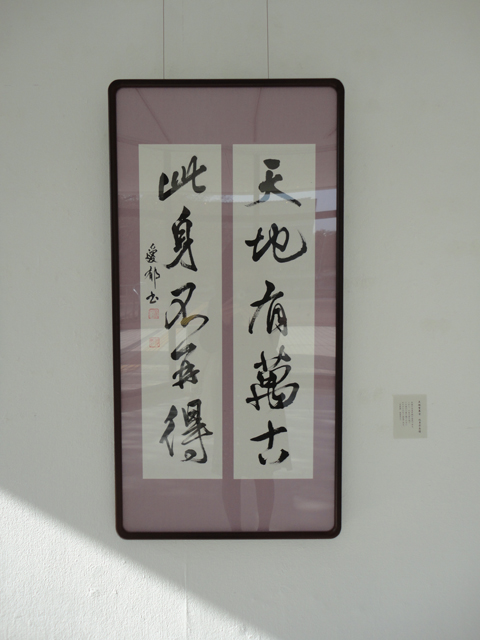 天地有萬古
此身不再得
愛郁書